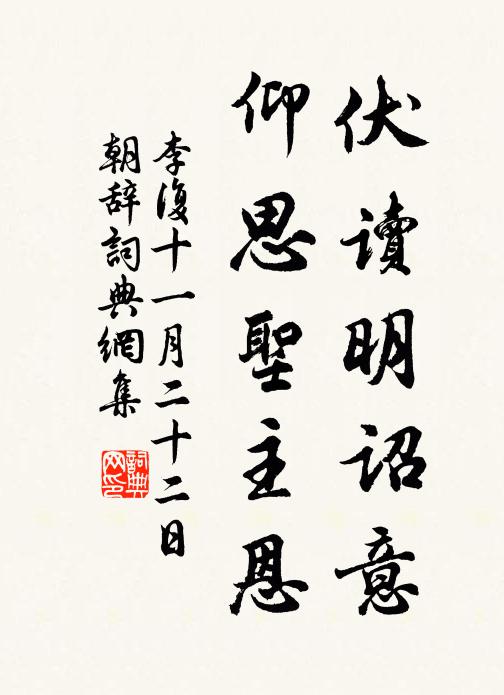 伏讀明詔意
仰思聖主恩
李復十一月二十二日
朝辞詞典網集
詞典网印